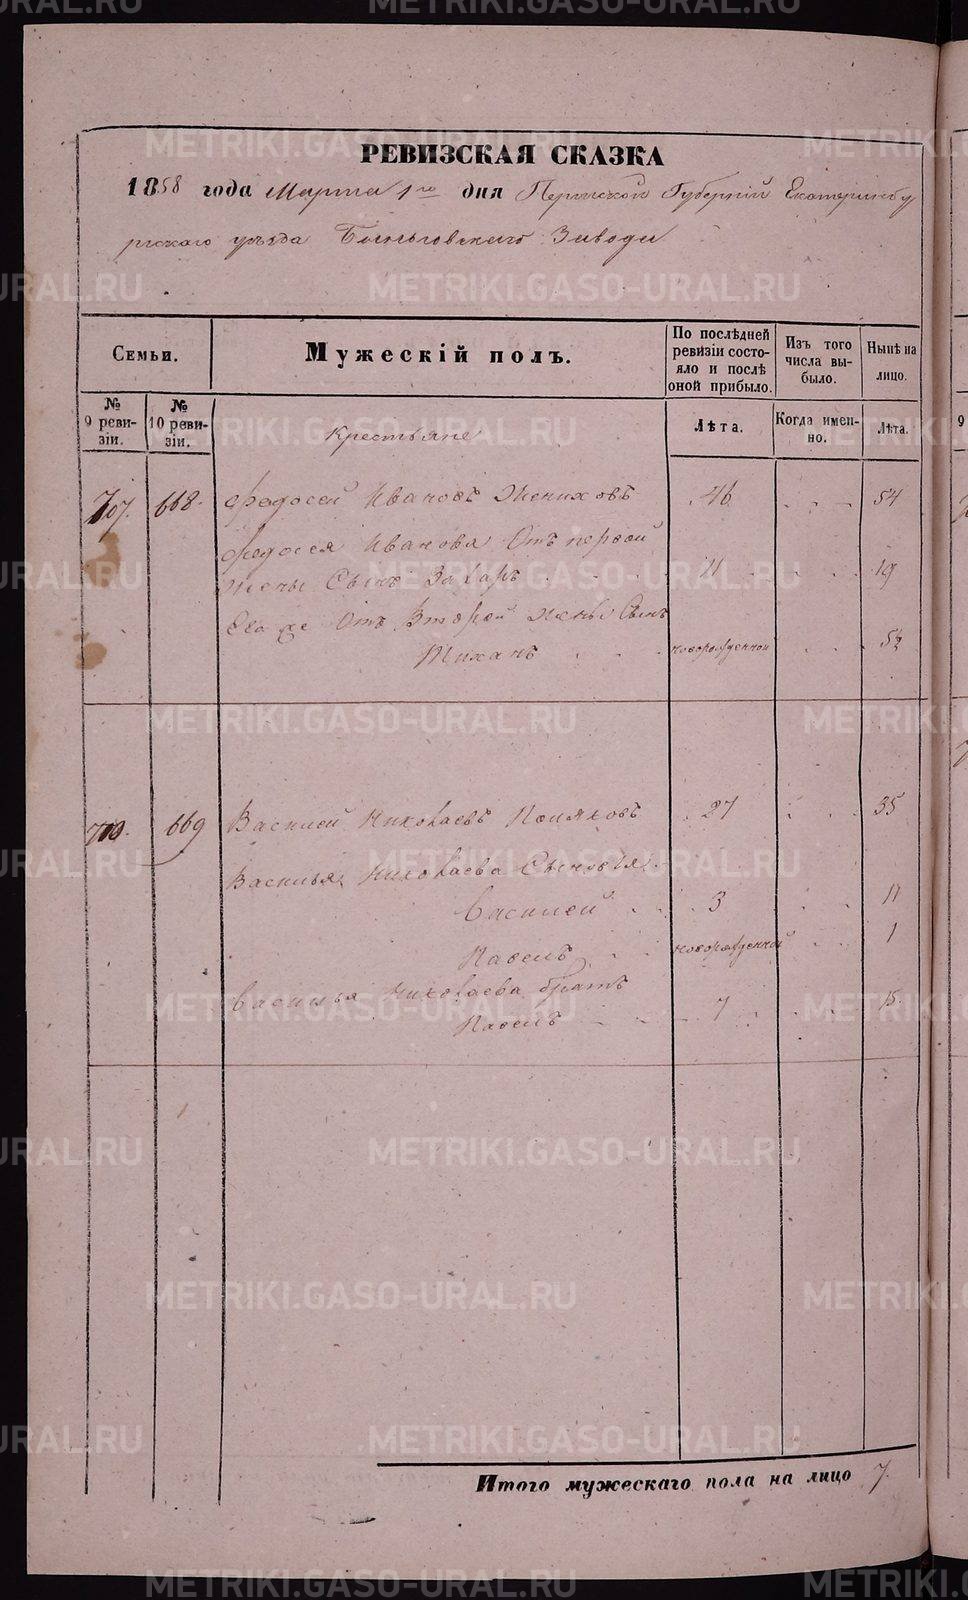 РЕВИЗСКАЯ СКАЗКА
1858 года Марта 1го дня Пермской Губерніи Екатеринбу
ргскаго уѣзда Быньговскаго Завода
Семьи.
Мужескій полъ.
По послѣдней ревизіи состояло и послѣ оной прибыло.
Изъ того числа выбыло.
Нынѣ на лицо.
№ 9 ревизіи.
№ 10 ревизіи.
Лѣта.
Когда именно.
Лѣта.
Крестьяне
707. 668. Федосей Ивановъ Жениховъ 46 54
Федосея Иванова Отъ первой
жены Сынъ Захаръ 11 19
Его же Отъ Второй Жены Сынъ
Тиханъ новорожденной 5½
710. 669 Василей Николаевъ Поляковъ 27 35
Василья Николаева Сыновья
Василей 3 11
Павелъ новорожденной 1
Василья Николаева братъ
Павелъ 7 15
Итого мужескаго пола на лицо 7.
METRIKI.GASO-URAL.RU